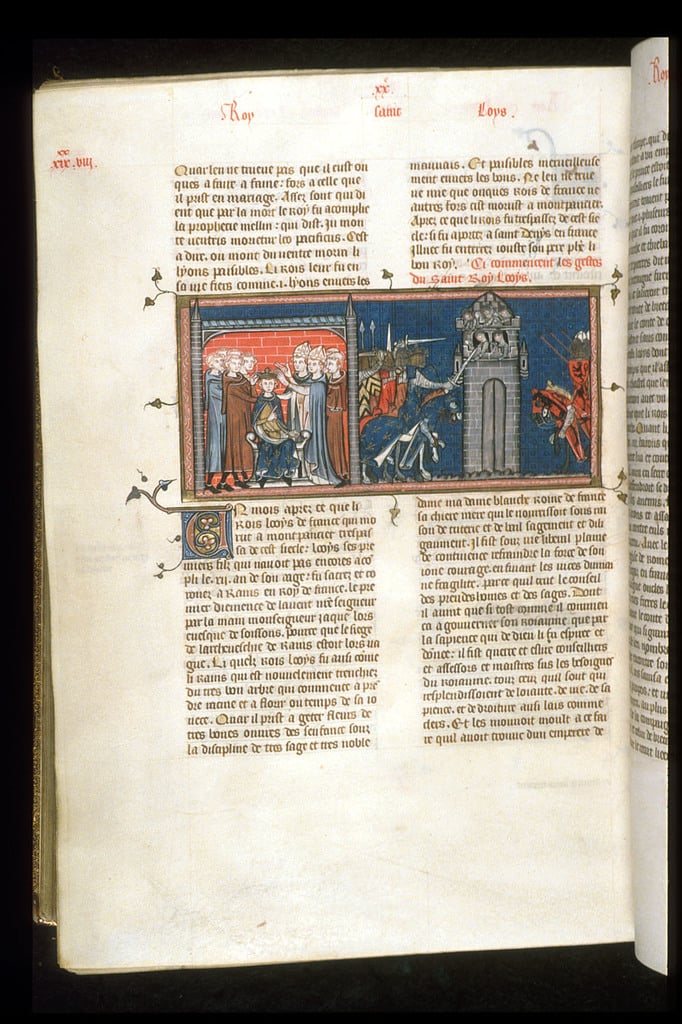 xx.
Roy saint Loys.
xx
xix. viii.
Quar len ne trueve pas que il eust on
ques a faire a fame: fors a celle que
il prist en mariage. Assez sont qui di
ent que par la mort le Roy fu acomplie
la prophecie mellin: qui dist. In mon
te ventris morietur leo pacificus. Cest
a dire. ou mont du ventre morra li
lyons paisibles. Li Rois leur fu en
sa vie fiers comme .i. lyons envers les
mauvais. Et paisibles merveilleuse
ment envers les bons. Ne len ne true
ve mie que onques Rois de france ne
autres fors cist morust a montpancier.
Apres ce que li Rois fu trespassez de cest sie
cle: si fu aportez a saint Denys en france
Illuec fu enterrez iouste son pere phe li
bon Roy. Ci commencent les gestes
du Saint Roy Looys.
En mois apres ce que li
Rois looys de france qui mo
rut a montpancier trespas
sa de cest siecle: looys ses pre
miers filz qui navoit pas encores aco
pli le .xii. an de son aage: fu sacrez et co
ronez a Rains en Roy de france. le pre
mier diemence de lavent nre seigneur
par la main monseigneur iaque lors
evesque de soissons. pource que le siege
de larcevesche de Rains estoit lors va
gue. Li quelx Rois looys fu ausi come
li rains qui est nouvelement trenchiez
du tres bon arbre qui commence a pre
dre racine et a florir ou temps de sa io
nece. Quar il prist a geter fleurs de
tres bones ouvres des senfance souz
la discipline de tres sage et tres noble
dame ma dame blanche Roine de france
sa chiere mere qui le nourrissoit souz un
son de tuterie et de bail sagement et dili
gaument. Il fist souz une liberal plaine
de continence refraindre la force de son
ione courage. en fuiant les vices dumai
ne fragilite. parce quil crut le conseil
des preudes homes et des sages. Dont
il avint que si tost comme il commen
ca a gouverner son Roiaume que par
la sapience qui de dieu li fu espiree et
donee: il fist querre et eslire conseilliers
et assessors et maistres sus les besoignes
du Roiaume. touz ceux quil sout qui
resplendissoient de loiaute. de vie. de sa
pience. et de droiture ausi lais comme
clers. Et les mouvoit moult a ce fai
re quil avoit trouve dun emperere de